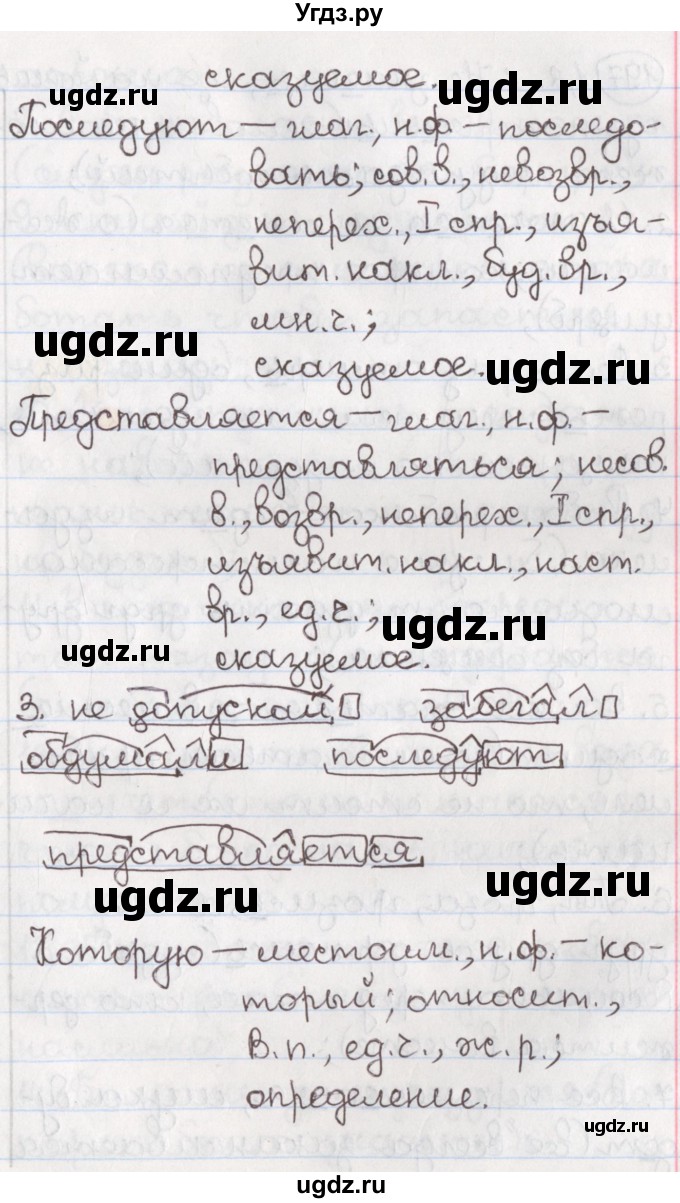 Угдз.ру
сказуемое.
ugdz.ru ugdz.ru
Последуют – глаг., н.ф – последо-
вать; сов.в., невозвр.,
неперех., I спр., изъя-
вит. накл., буд. вр.,
мн.ч.;
ugdz.ru ugdz.ru
сказуемое.
Представляется – глаг., н.ф. –
представляться; несов.
в., возвр., неперех., I спр.,
изъявит. накл., наст.
вр., ед.ч.;
ugdz.ru ugdz.ru
сказуемое.
3. не допускай забегал
обдумали последуют
представляется
ugdz.ru ugdz.ru
Которую – местоим., н.ф. – ко-
торый; относит.,
В.п., ед.ч., ж.р.;
определение.
ugdz.ru
ugdz.ru